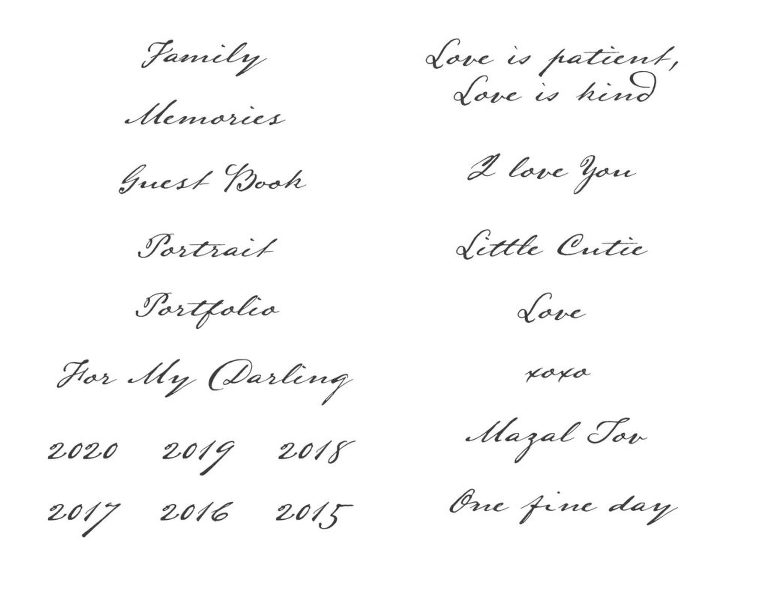 Family
Memories
Guest Book
Portrait
Portfolio
For My Darling
2020 2019 2018
2017 2016 2015
Love is patient,
Love is kind
I love You
Little Cutie
Love
xoxo
Mazal Tov
One fine day